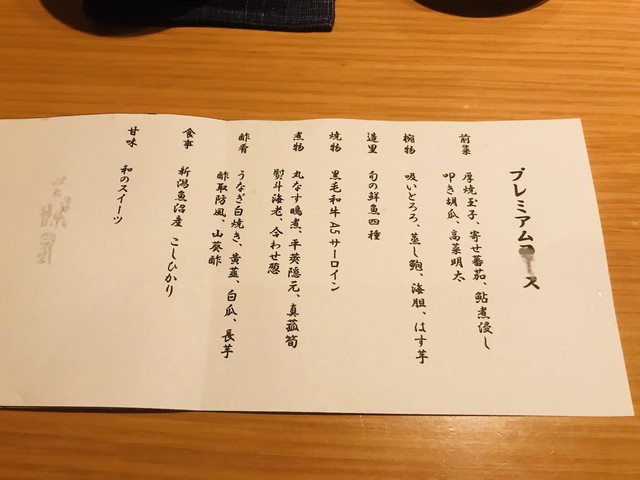 プレミアムコース
前菜
厚焼玉子、寄せ蕃茄、鮎煮浸し
叩き胡瓜、高菜明太
椀物
吸いとろろ、蒸し鮑、海胆、はす芋
造里
旬の鮮魚四種
焼物
黒毛和牛A5サーロイン
煮物
丸なす鴫煮、平莢隠元、真菰筍
熨斗海老、合わせ葱
酢肴
うなぎ白焼き、黄韮、白瓜、長芋
酢取防風、山葵酢
食事
新潟魚沼産 こしひかり
甘味
和のスイーツ